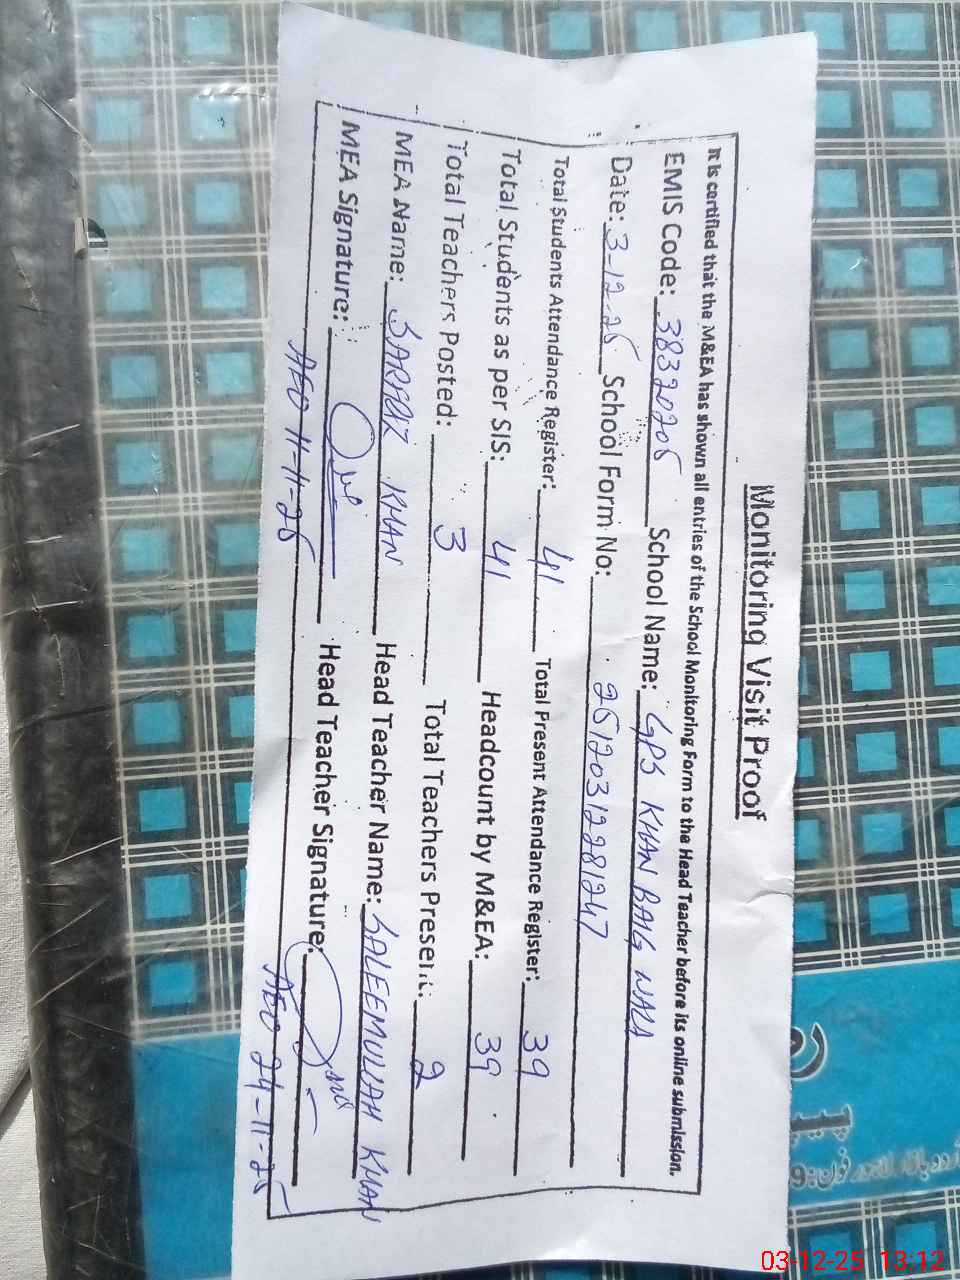 Monitoring Visit Proof
It is certified that the M&EA has shown all entries of the School Monitoring Form to the Head Teacher before its online submission.
EMIS Code: 38320205 School Name: GPS KHAN BAIG WALA
Date: 3-12-25 School Form No: 25120312281247
Total Students Attendance Register: 41 Total Present Attendance Register: 39
Total Students as per SIS: 41 Headcount by M&EA: 39
Total Teachers Posted: 3 Total Teachers Present: 2
MEA Name: SARFRAZ KHAN Head Teacher Name: SALEEMULLAH KHAN
MEA Signature: Head Teacher Signature:
AEO 11-11-25 AEO 24-11-25
03-12-25 13:12